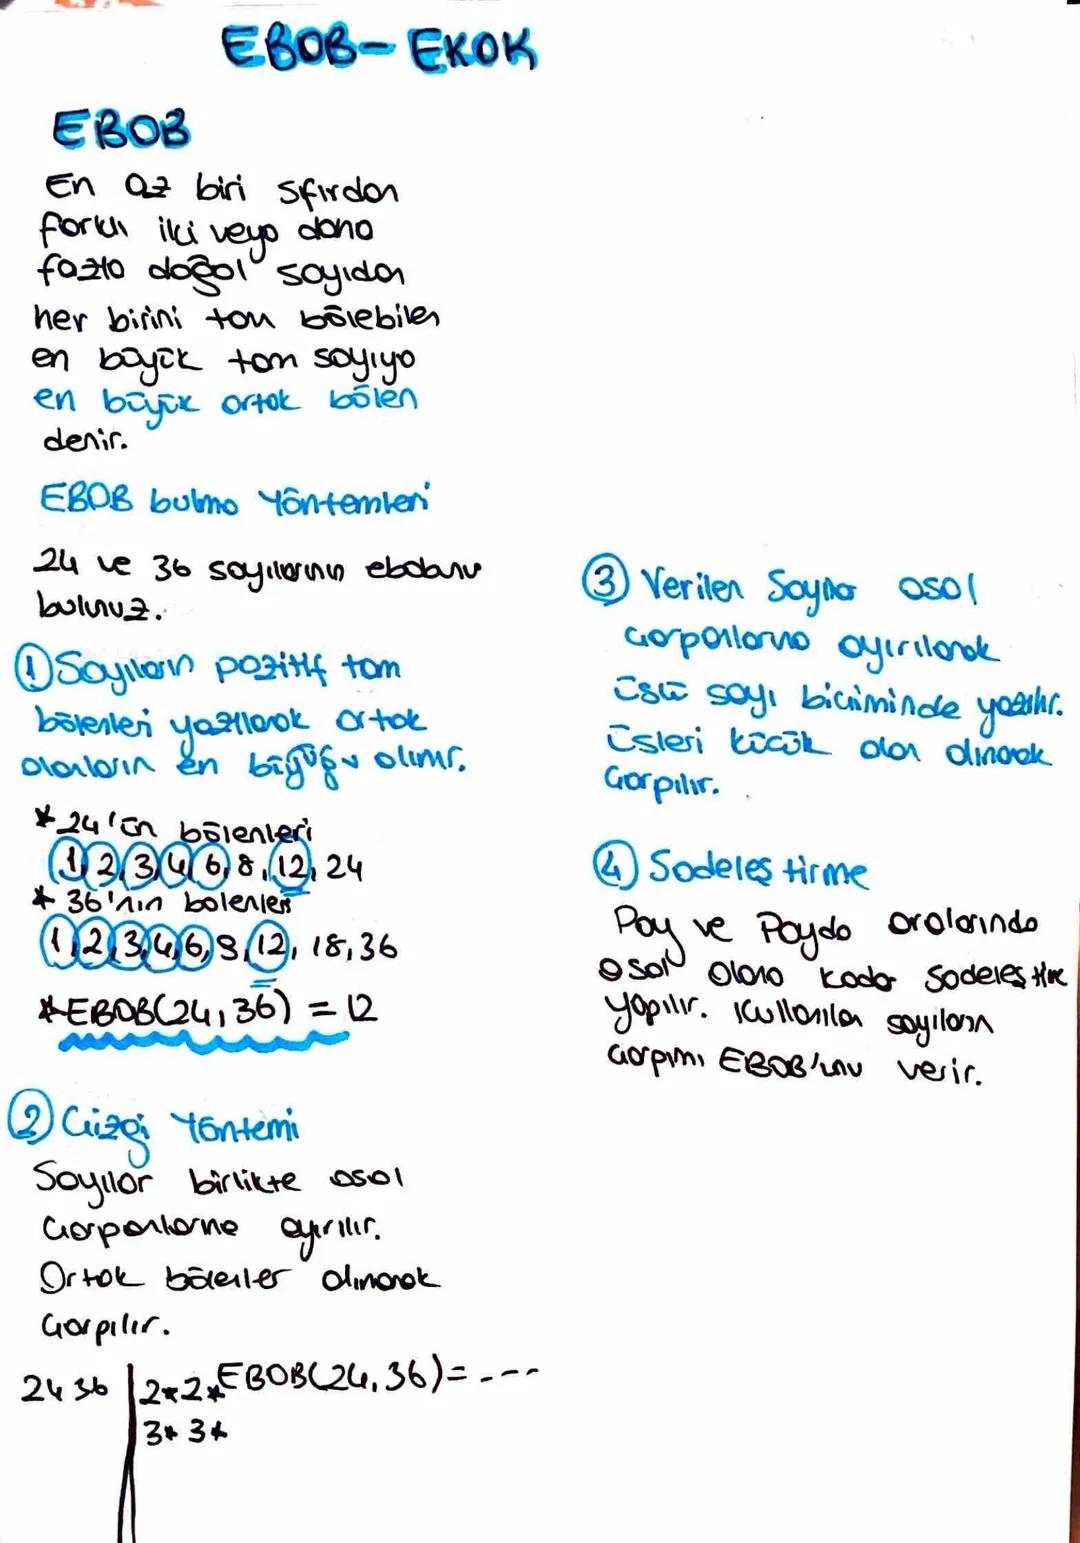 EBOB-EKOK
EBOB
En az biri sfırdan
farklı iki veya daha
fazla doğal sayıdan
her birini tam bölebilen
en büyük tam sayıya
en büyük ortak bölen
denir.
EBOB bulma Yöntemleri
24 ve 36 sayılarının ebobunu
bulunuz.
① Sayıların pozitif tam
bölenleri yazılarak ortak
olanların en büyüğü alınır.
* 24'ün bölenleri
1, 2, 3, 4, 6, 8, 12, 24
* 36'nın bölenleri
1, 2, 3, 4, 6, 9, 12, 18, 36
* EBOB(24, 36) = 12
② Çizgi Yöntemi
Sayılar birlikte asal
Çarpanlarına ayırılır.
Ortak bölenler alınarak
Çarpılır.
24 36 | 2* 2* EBOB(24, 36) = ----
3* 3*
③ Verilen Sayılar asal
Çarpanlarına ayırılarak
üslü sayı biçiminde yazılır.
Üsleri küçük olan alınarak
Çarpılır.
④ Sadeleştirme
Pay ve Payda aralarında
asal olana kadar Sadeleştirme
yapılır. Kullanılan sayıların
çarpımı EBOB'unu verir.